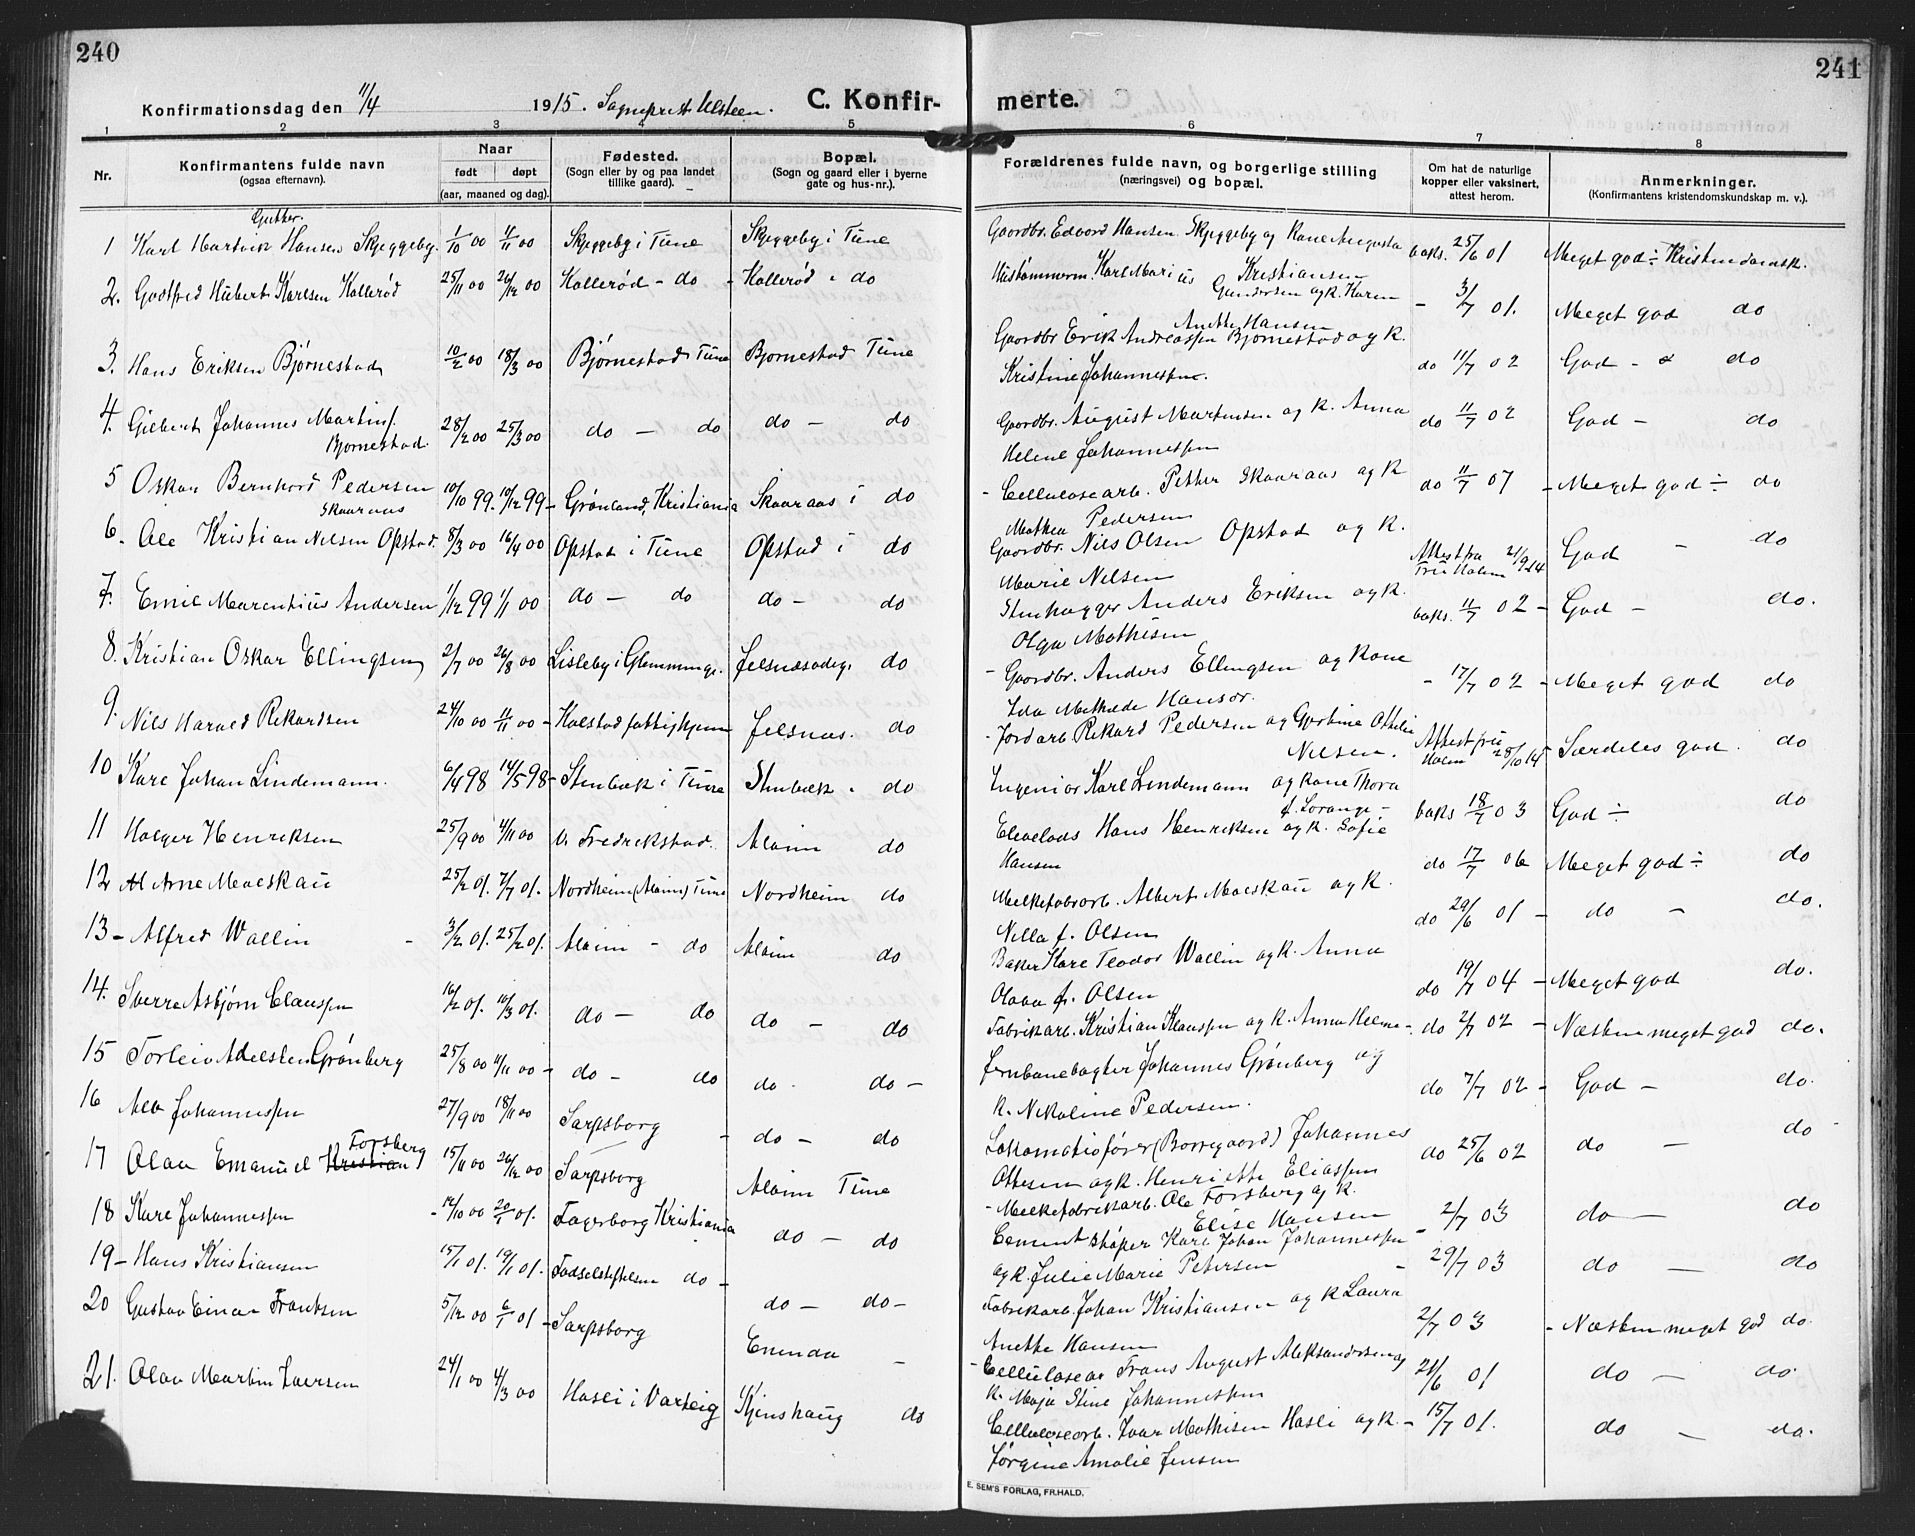 240
Konfirmationsdag den 11/4 1915. Sogneprest Ulsteen. C. Konfir-
1 2 3 4 5
Nr.
Konfirmantens fulde navn
(ogsaa efternavn).
Naar
født døpt
(aar, maaned og dag).
Fødested.
(Sogn eller by og paa landet
tillike gaard).
Bopæl.
(Sogn og gaard eller i byerne
gate og hus-nr.).
Gutter.
1 Karl Hartvik Hansen Skjeggeby. 1/10 00 4/11 00 Skjeggeby i Tune Skjeggeby i Tune
2. Gostfred Hubert Karlsen Kollerød 25/11 00 26/12 00 Kollerød - do - Kollerød - do
3. Hans Eriksen Bjørnestad 10/2 00 18/3 00 Bjørnestad Tune Bjørnestad Tune
4. Gilbert Johannes Martins.
Bjørnestad. 28/2 00 25/3 00 do - do do - do
5 Oskar Bernhard Pedersen
Skaaraas 10/10 99. 10/12 99 - Grønland, Kristiania Skaaraas i do
6. Ole Kristian Nilsen Opstad. 8/3 00 16/4 00 Opstad i Tune Opstad i do
7. Emil Marentius Andersen 1/12 99 1/1 00 do - do do - do
8. Kristian Oskar Ellingsen 2/7 00 26/8 00 Lisleby i Glemminge. do
9. Nils Harald Rikardsen 24/10 00 11/11 00 - Kalstad fattighjem do
10 Karl Johan Lindemann. 6/4 98 14/5 98 - Stenbæk i Tune Stenbæk - do
11 Holger Henriksen 25/9 00 4/11 00 V. Fredrikstad. Alvim do
12 Al Arne Moeskau 25/2 01. 7/7 01. Nordheim (Alvim) Tune Nordheim do
13 - Alfred Wallin - 3/2 01. 25/2 01. Alvim - do Alvim do
14. Sverre Asbjørn Claussen 16/2 01. 10/3 01. do - do do - do
15 Torleiv Adelsten Grønberg 25/8 00 4/11 00 - do - do do. do -
16 Alv Johannessen 27/9 00 18/11 00 Sarpsborg - do - do
17 Olav Emanuel Kristian Forsberg 15/11 00 26/12 00 Sarpsborg Alvim Tune
18 Karl Johannessen - 14/10 00 20/1 01. Fagerborg Kristiania do - do
19 - Hans Kristiansen 15/1 01. 19/1 01. Fødselstiftelsen do - do - do -
20 Gustav Einar Frantsen 5/12 00 6/1 01 - Sarpsborg Enenda -
21. Olav Martin Iversen 24/1 00 4/3 00 Hasli i Varteig Kjenshaug do
241
merte.
6 7 8
Forældrenes fulde navn, og borgerlige stilling
(næringsvei) og bopæl.
Om hat de naturlige
kopper eller vaksinert,
attest herom.
Anmerkninger.
(Konfirmantens kristendomskundskap m. v.).
Gaardbr. Edvard Hansen Skjeggeby og Kone Augusta
Kristiansen vaks. 25/6 01 Meget god ÷ Kristendomsk.
Hustømmerm. Karl Marius Gundersen og k. Karen
Anette Hansen - 3/7 01. Meget god do
Gaardbr Erik Andreassen Bjørnestad og k.
Kristine Johannessen. do 11/7 02 God - do
Gaardbr. August Martinsen og k. Anna
Helene Johannessen do 11/7 02 God - do
- Cellulosearb. Petter Skaaraas og k
Mathea Pedersen do 11/7 07 - Meget god ÷ do
Gaardbr. Nils Olsen Opstad og k.
Marie Nelsen Attest fra Holm 21/9 14 God - do
Stenhugger Anders Eriksen og k.
Olga Mathisen vaks. 11/7 02 - God - do.
- Gaardbr. Anders Ellingsen og Kone
Ida Methilde Hansdr. - 17/7 02 - Meget god do
- Jordarb. Rikard Pedersen og Gjertine Othelie
Nelsen. Attest fru Holm 28/10 14 Særdeles god. do
Ingeniør Karl Lindemann og Kone Thora
f. Lorange - vaks 18/7 03 God ÷ do
Hans Henriksen og k. Sofie
Hansen do 17/7 06 Meget god ÷ do
Melkefabrarb. Albert Moeskau og k.
Nilla f. Olsen do 29/6 01 - do - do.
Baker Karl Teodor Wallin og k. Anna
Olava f. Olsen do 19/7 04 - Meget god do.
Fabrikarb. Kristian Klaussen og k. Anna Helene - do 2/7 02 - Næsten meget god do.
Jernbanevagter Johannes Grønberg og
k. Nikoline Pedersen. do 7/7 02 - God - do.
Lokomotivfører (Borregaard) Johannes
Ottesen og k. Henriette Eliassen do 25/6 02 do - do
- Melkefabrikarb. Ole Forsberg og k.
Elise Hansen - 2/7 03 do - do
Cementstøper Karl Johan Johannessen
og k. Julie Marie Petersen - 29/7 03 do - do
Fabrikarb. Johan Kristiansen og k Laura
Anette Hansen 2/7 03 - Næsten meget god do.
- Cellulosear Frans August Aleksandersen og
k. Maja Stine Johannessen 21/6 01 do - do.
Cellulosearb. Ivar Mathisen Hasli og k. - 15/7 01. do - do.
Jørgine Amalie Jensen
E. SEM'S FORLAG, FR.HALD.